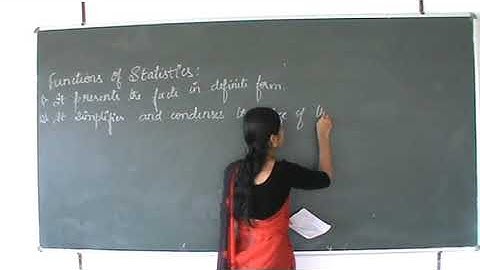 Functions of Statistics:
It presents the facts in definite form.
It simplifies and condenses of